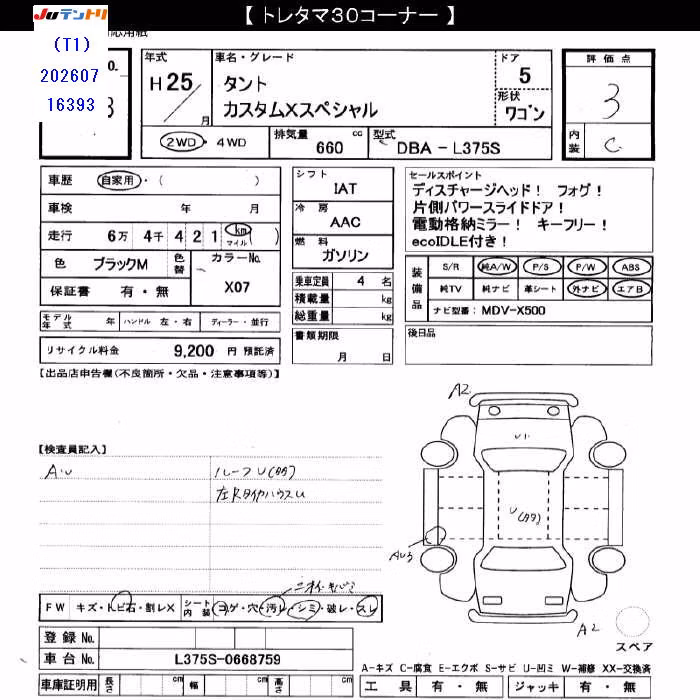 【 トレタマ30コーナー 】
JUテントリ
応用紙
(T1)
202607
16393
No.
3
年式
H 25
月
車名・グレード
タント
カスタムXスペシャル
ドア
5
形状
ワゴン
評価点
3
内装
C
2WD・4WD
排気量
660
cc
型式
DBA - L375S
車歴
自家用・( )
車検
年 月
走行
6万 4千 4 2 1
km
マイル
( )
色
ブラックM
色替
カラーNo.
X07
保証書
有・無
シフト
IAT
冷房
AAC
燃料
ガソリン
乗車定員 4 名
積載量 kg
総重量 kg
書類期限
月 日
セールスポイント
ディスチャージヘッド! フォグ!
片側パワースライドドア!
電動格納ミラー! キーフリー!
ecoIDLE付き!
装備品
S/R 純A/W P/S P/W ABS
純TV 純ナビ 革シート 外ナビ エアB
ナビ型番: MDV-X500
モデル年式 年 ハンドル 左・右 ディーラー・並行
後日品
リサイクル料金 9,200 円 預託済
【出品店申告欄(不良箇所・欠品・注意事項等)】
【検査員記入】
A・U
ルーフU(タタ)
左RタイヤハウスU
A2
U1
U(タタ)
AU3
A2
スペア
FW キズ・トビ石・割レX
シート内装 ヨゲ・穴・汚レ・シミ・破レ・スレ
登録 No.
車台 No. L375S-0668759
車庫証明用 長さ cm 幅 cm 高さ cm
A-キズ C-腐食 E-エクボ S-サビ U-凹ミ W-補修 XX-交換済
工具 有・無 ジャッキ 有・無